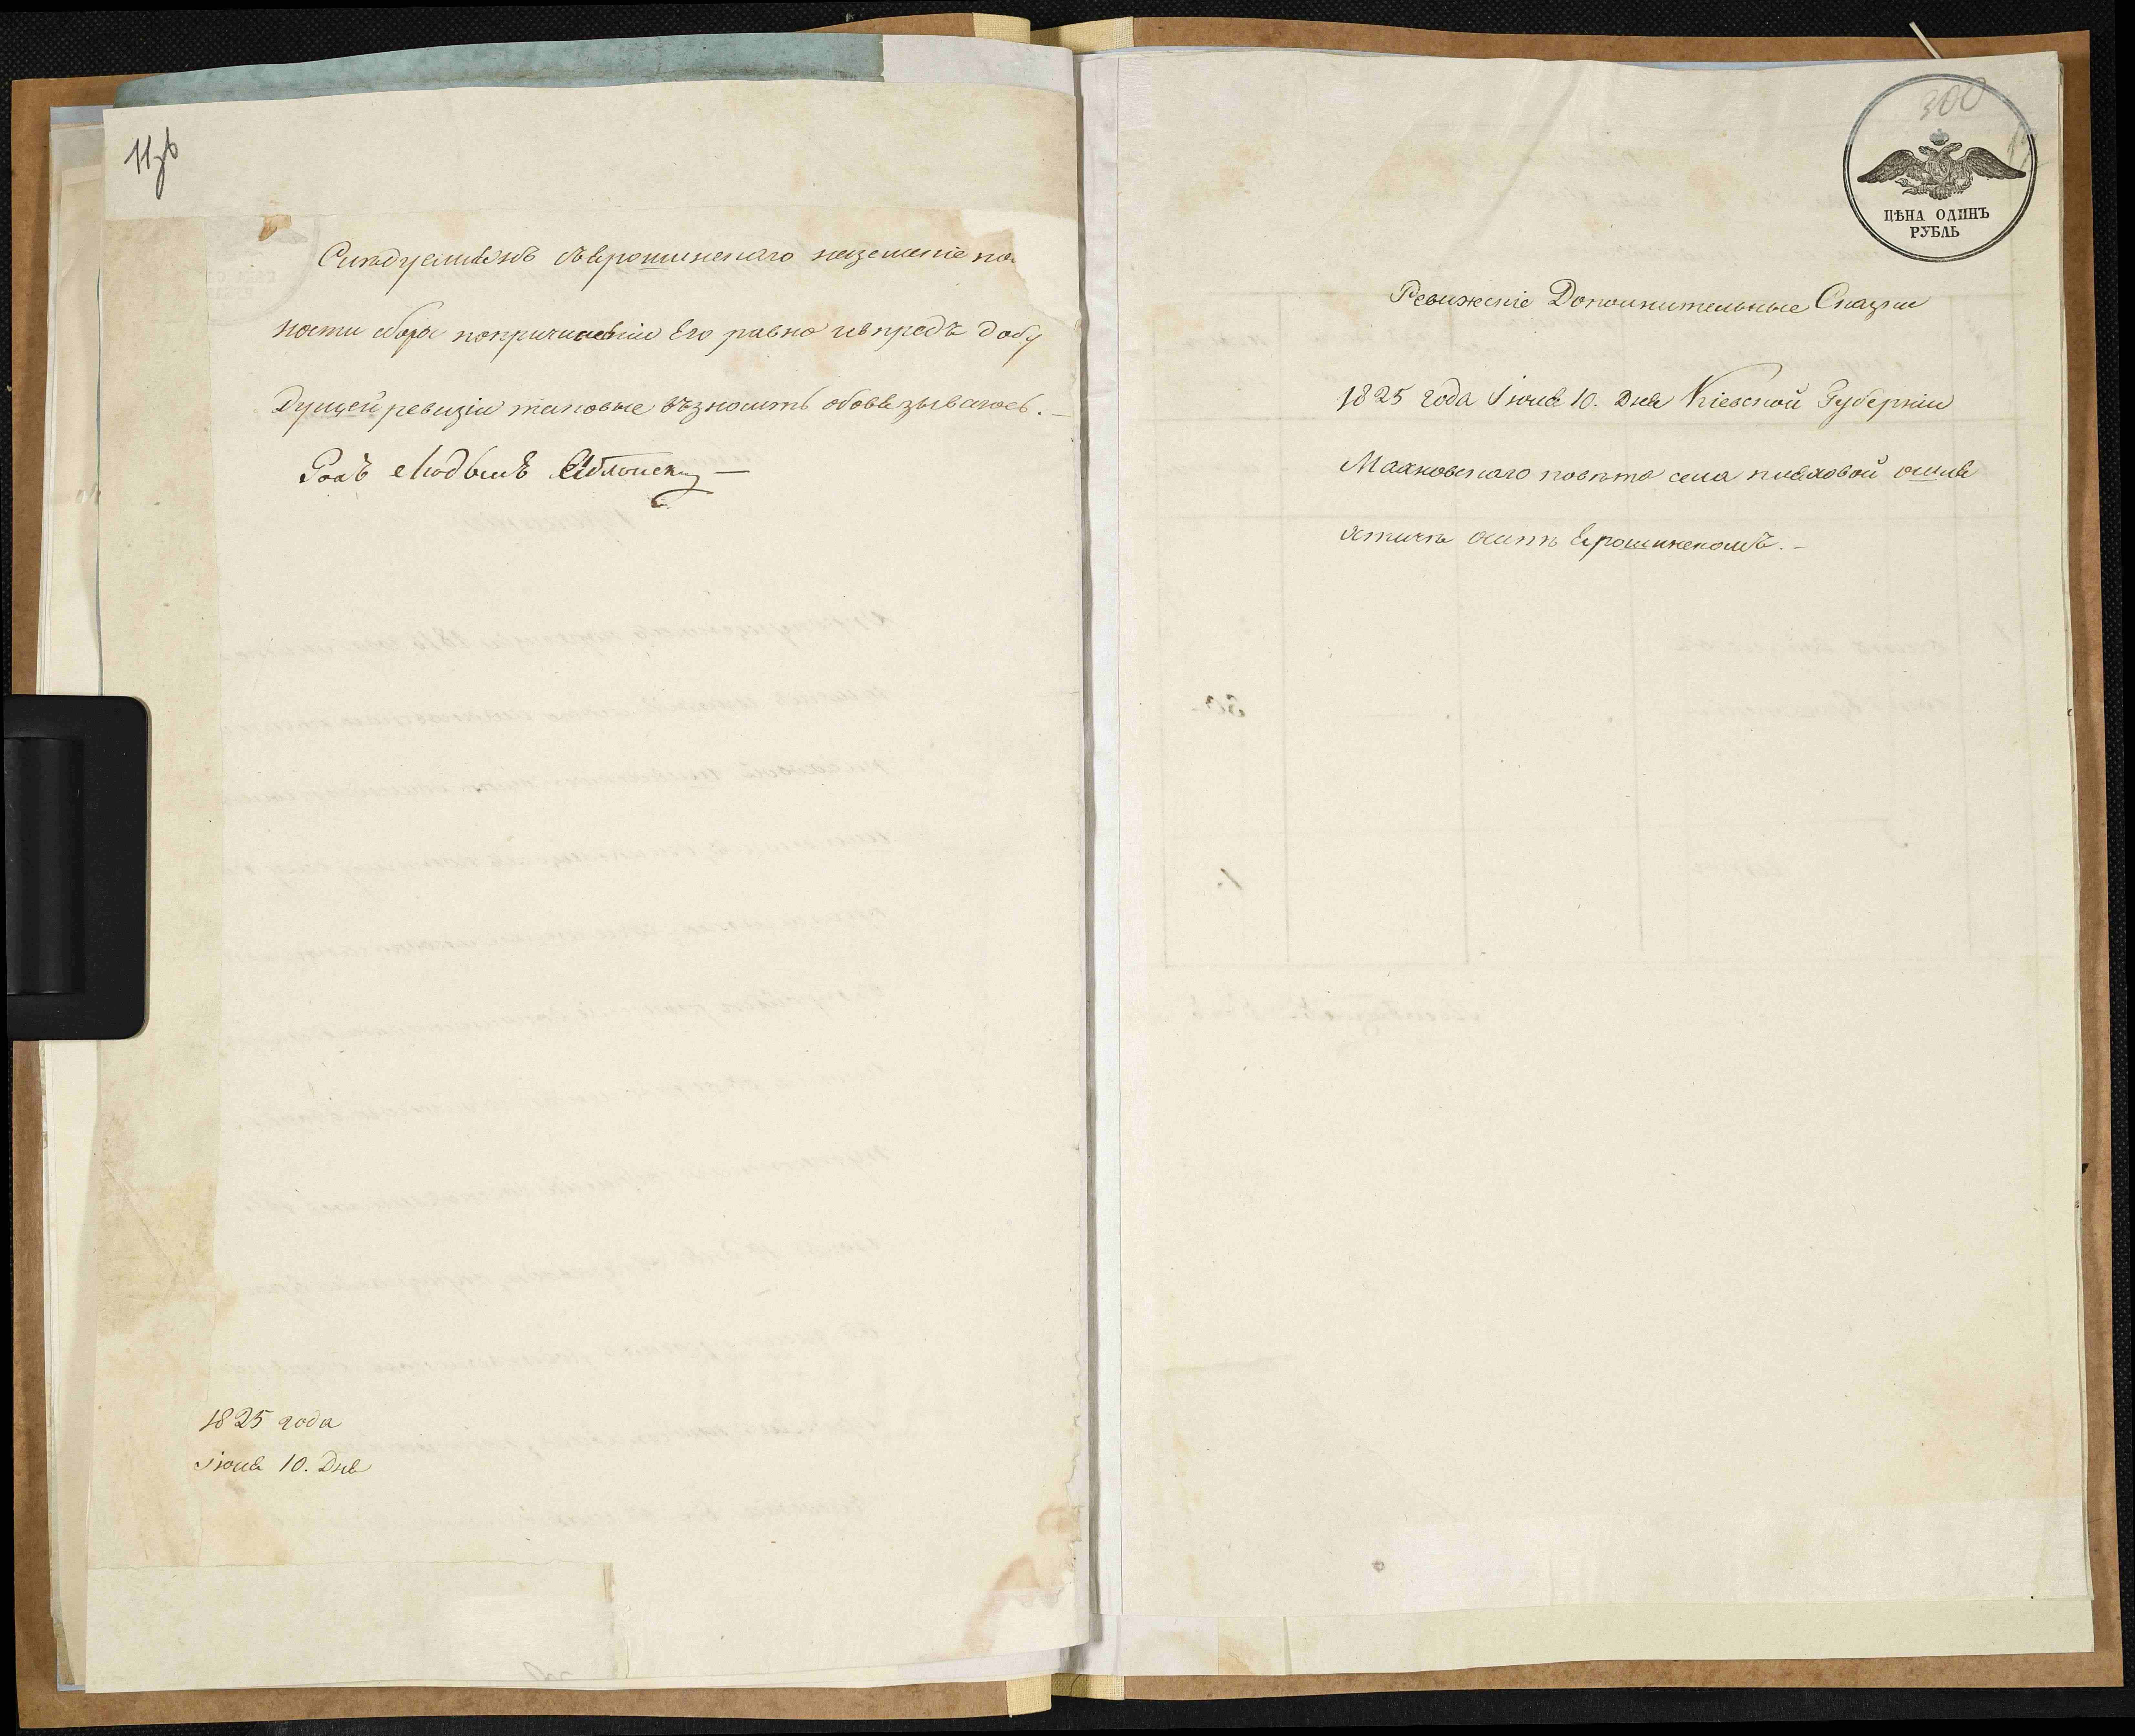 11зв
Слѣдуемыя съ Ярошинскаго наземние по
ности сборы попричисленіи Его равно ивпредъ добу
дущей ревизіи таковые възносить обовязываюсь. —
Рохъ Людвикъ Яблонски —
1825 года
Іюня 10. Дня
300
ЦѢНА ОДИНЪ
РУБЛЬ
Ревижскіе Дополнительные Сказки
1825 года Іюня 10. Дня Кіевской Губерніи
Махновскаго повѣта села пиляховой о
Ярошинскомъ. —